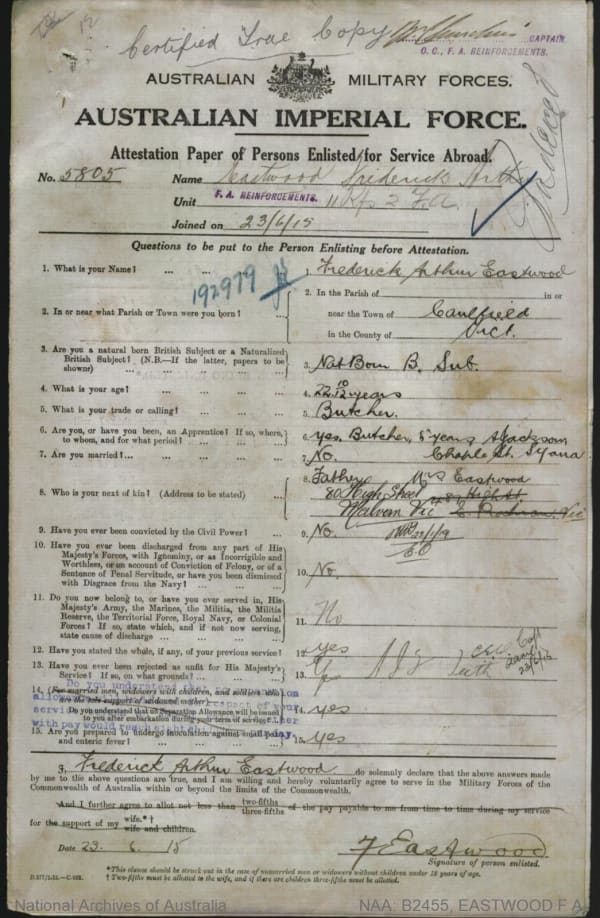 12
Certified True Copy
CAPTAIN
O.C., F.A. REINFORCEMENTS.
AUSTRALIAN MILITARY FORCES.
AUSTRALIAN IMPERIAL FORCE.
Attestation Paper of Persons Enlisted for Service Abroad.
No. 5805 Name Eastwood Frederick Arthur
Unit F. A. REINFORCEMENTS. 11 Rfs 2 F.A.
Joined on 23/6/15
Questions to be put to the Person Enlisting before Attestation.
1. What is your Name? ... ... 1. Frederick Arthur Eastwood
192979
2. In or near what Parish or Town were you born? ... 2. In the Parish of in or
near the Town of Caulfield
in the County of Vict.
3. Are you a natural born British Subject or a Naturalized
British Subject? (N.B.—If the latter, papers to be
shown) ... 3. Nat Born B. Sub.
4. What is your age? ... 4. 22 10/12 years
5. What is your trade or calling? ... 5. Butcher.
6. Are you, or have you been, an Apprentice? If so, where,
to whom, and for what period? ... 6. yes. Butcher, 5 years A Jackson
Chaple St. S Yarra
7. Are you married? ... 7. No.
8. Who is your next of kin? (Address to be stated) ... 8. Father Mrs Eastwood
80 High Street
Malvern Vic
9. Have you ever been convicted by the Civil Power? ... 9. No.
10. Have you ever been discharged from any part of His
Majesty's Forces, with Ignominy, or as Incorrigible and
Worthless, or on account of Conviction of Felony, or of a
Sentence of Penal Servitude, or have you been dismissed
with Disgrace from the Navy? ... 10. No.
11. Do you now belong to, or have you ever served in, His
Majesty's Army, the Marines, the Militia, the Militia
Reserve, the Territorial Force, Royal Navy, or Colonial
Forces? If so, state which, and if not now serving,
state cause of discharge ... 11. No
12. Have you stated the whole, if any, of your previous service? 12. yes
13. Have you ever been rejected as unfit for His Majesty's
Service? If so, on what grounds? ... 13. Yes Teeth
23/6/15
14. (For married men, widowers with children, and soldiers who
are the sole support of widowed mother)
Do you understand that no Separation Allowance will be issued
to you after embarkation during your term of service? 14. yes
15. Are you prepared to undergo inoculation against small pox
and enteric fever? ... 15. yes
I, Frederick Arthur Eastwood do solemnly declare that the above answers made
by me to the above questions are true, and I am willing and hereby voluntarily agree to serve in the Military Forces of the
Commonwealth of Australia within or beyond the limits of the Commonwealth.
And I further agree to allot not less than two-fifths three-fifths of the pay payable to me from time to time during my service
for the support of my wife.*†
wife and children.
Date 23. 6. 15 F Eastwood
Signature of person enlisted.
*This clause should be struck out in the case of unmarried men or widowers without children under 18 years of age.
† Two-fifths must be allotted to the wife, and if there are children three-fifths must be allotted.
National Archives of Australia NAA: B2455, EASTWOOD F A